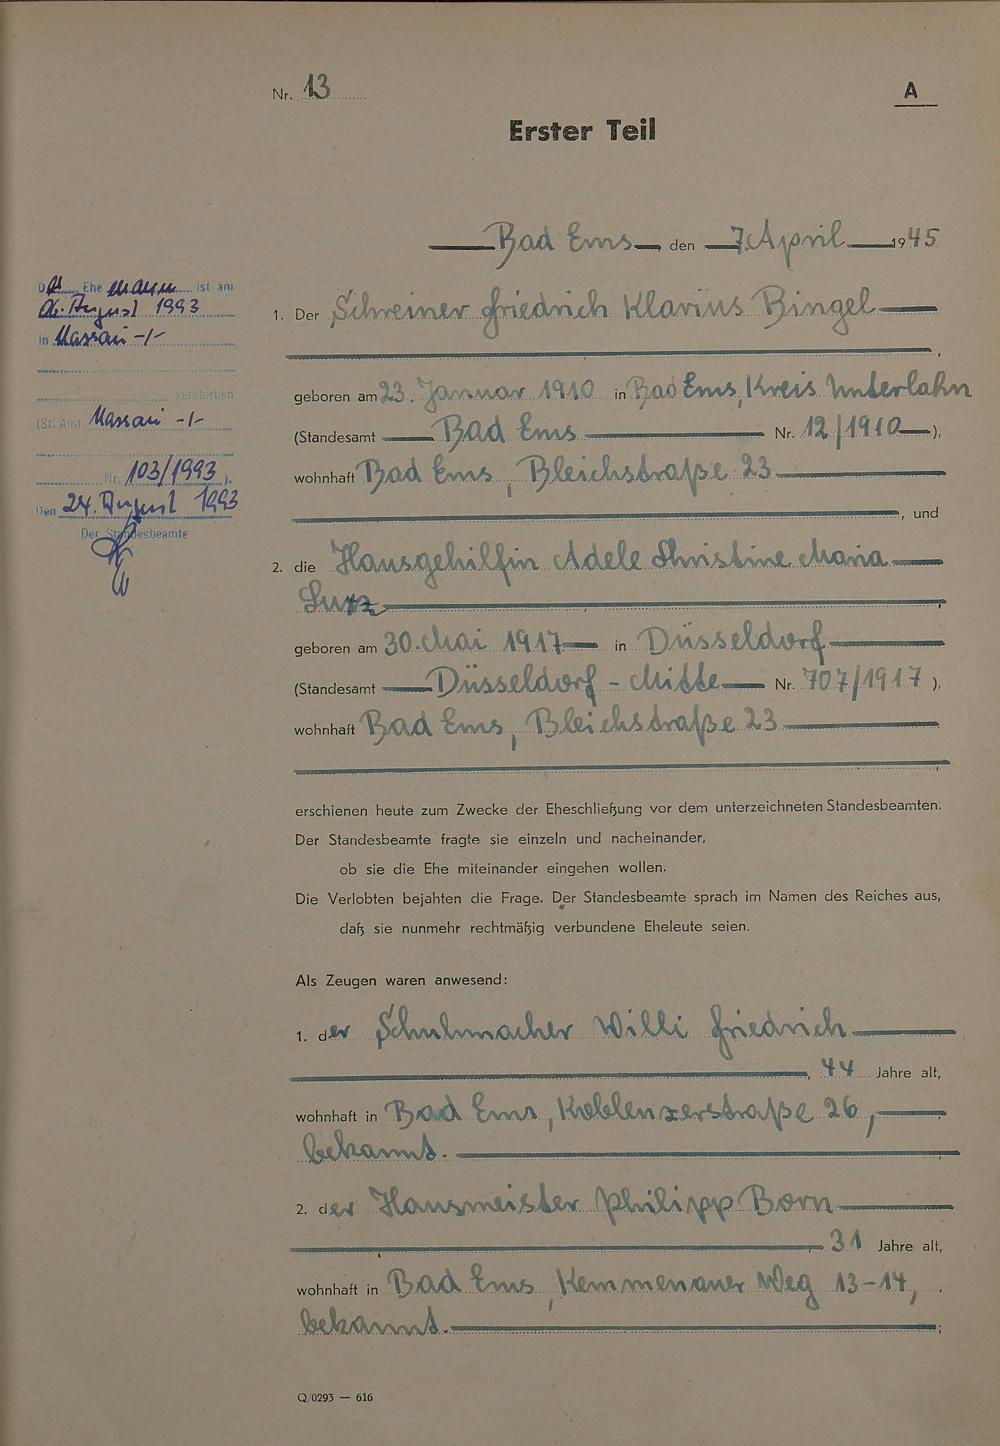 Nr. 13
A
Erster Teil
Bad Ems, den 7. April 1945
Der Ehemann ist am
06. August 1993
in Nassau -/-
verstorben
(St. Amt Nassau -/-
Nr. 103/1993).
Den 24. August 1993
Der Standesbeamte
1. Der Schreiner Friedrich Klarius Bingel
,
geboren am 23. Januar 1910 in Bad Ems, Kreis Unterlahn
(Standesamt Bad Ems Nr. 12/1910),
wohnhaft Bad Ems, Bleichstraße 23
, und
2. die Hausgehilfin Adele Christine Maria
geboren am 30. Mai 1917 in Düsseldorf
(Standesamt Düsseldorf - Mitte Nr. 707/1917),
wohnhaft Bad Ems, Bleichstraße 23
,
erschienen heute zum Zwecke der Eheschließung vor dem unterzeichneten Standesbeamten.
Der Standesbeamte fragte sie einzeln und nacheinander,
ob sie die Ehe miteinander eingehen wollen.
Die Verlobten bejahten die Frage. Der Standesbeamte sprach im Namen des Reiches aus,
daß sie nunmehr rechtmäßig verbundene Eheleute seien.
Als Zeugen waren anwesend:
1. der Schuhmacher Willi Friedrich
, 44 Jahre alt,
wohnhaft in Bad Ems, Koblenzerstraße 26,
bekannt.
2. der Hausmeister Philipp Born
, 31 Jahre alt,
wohnhaft in Bad Ems, Kemmenauer Weg 13-14,
bekannt. ;
Q/0293 — 616